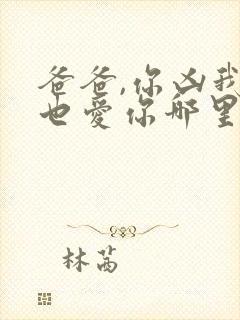 爸爸,你凶我
也爱你哪里
林茜